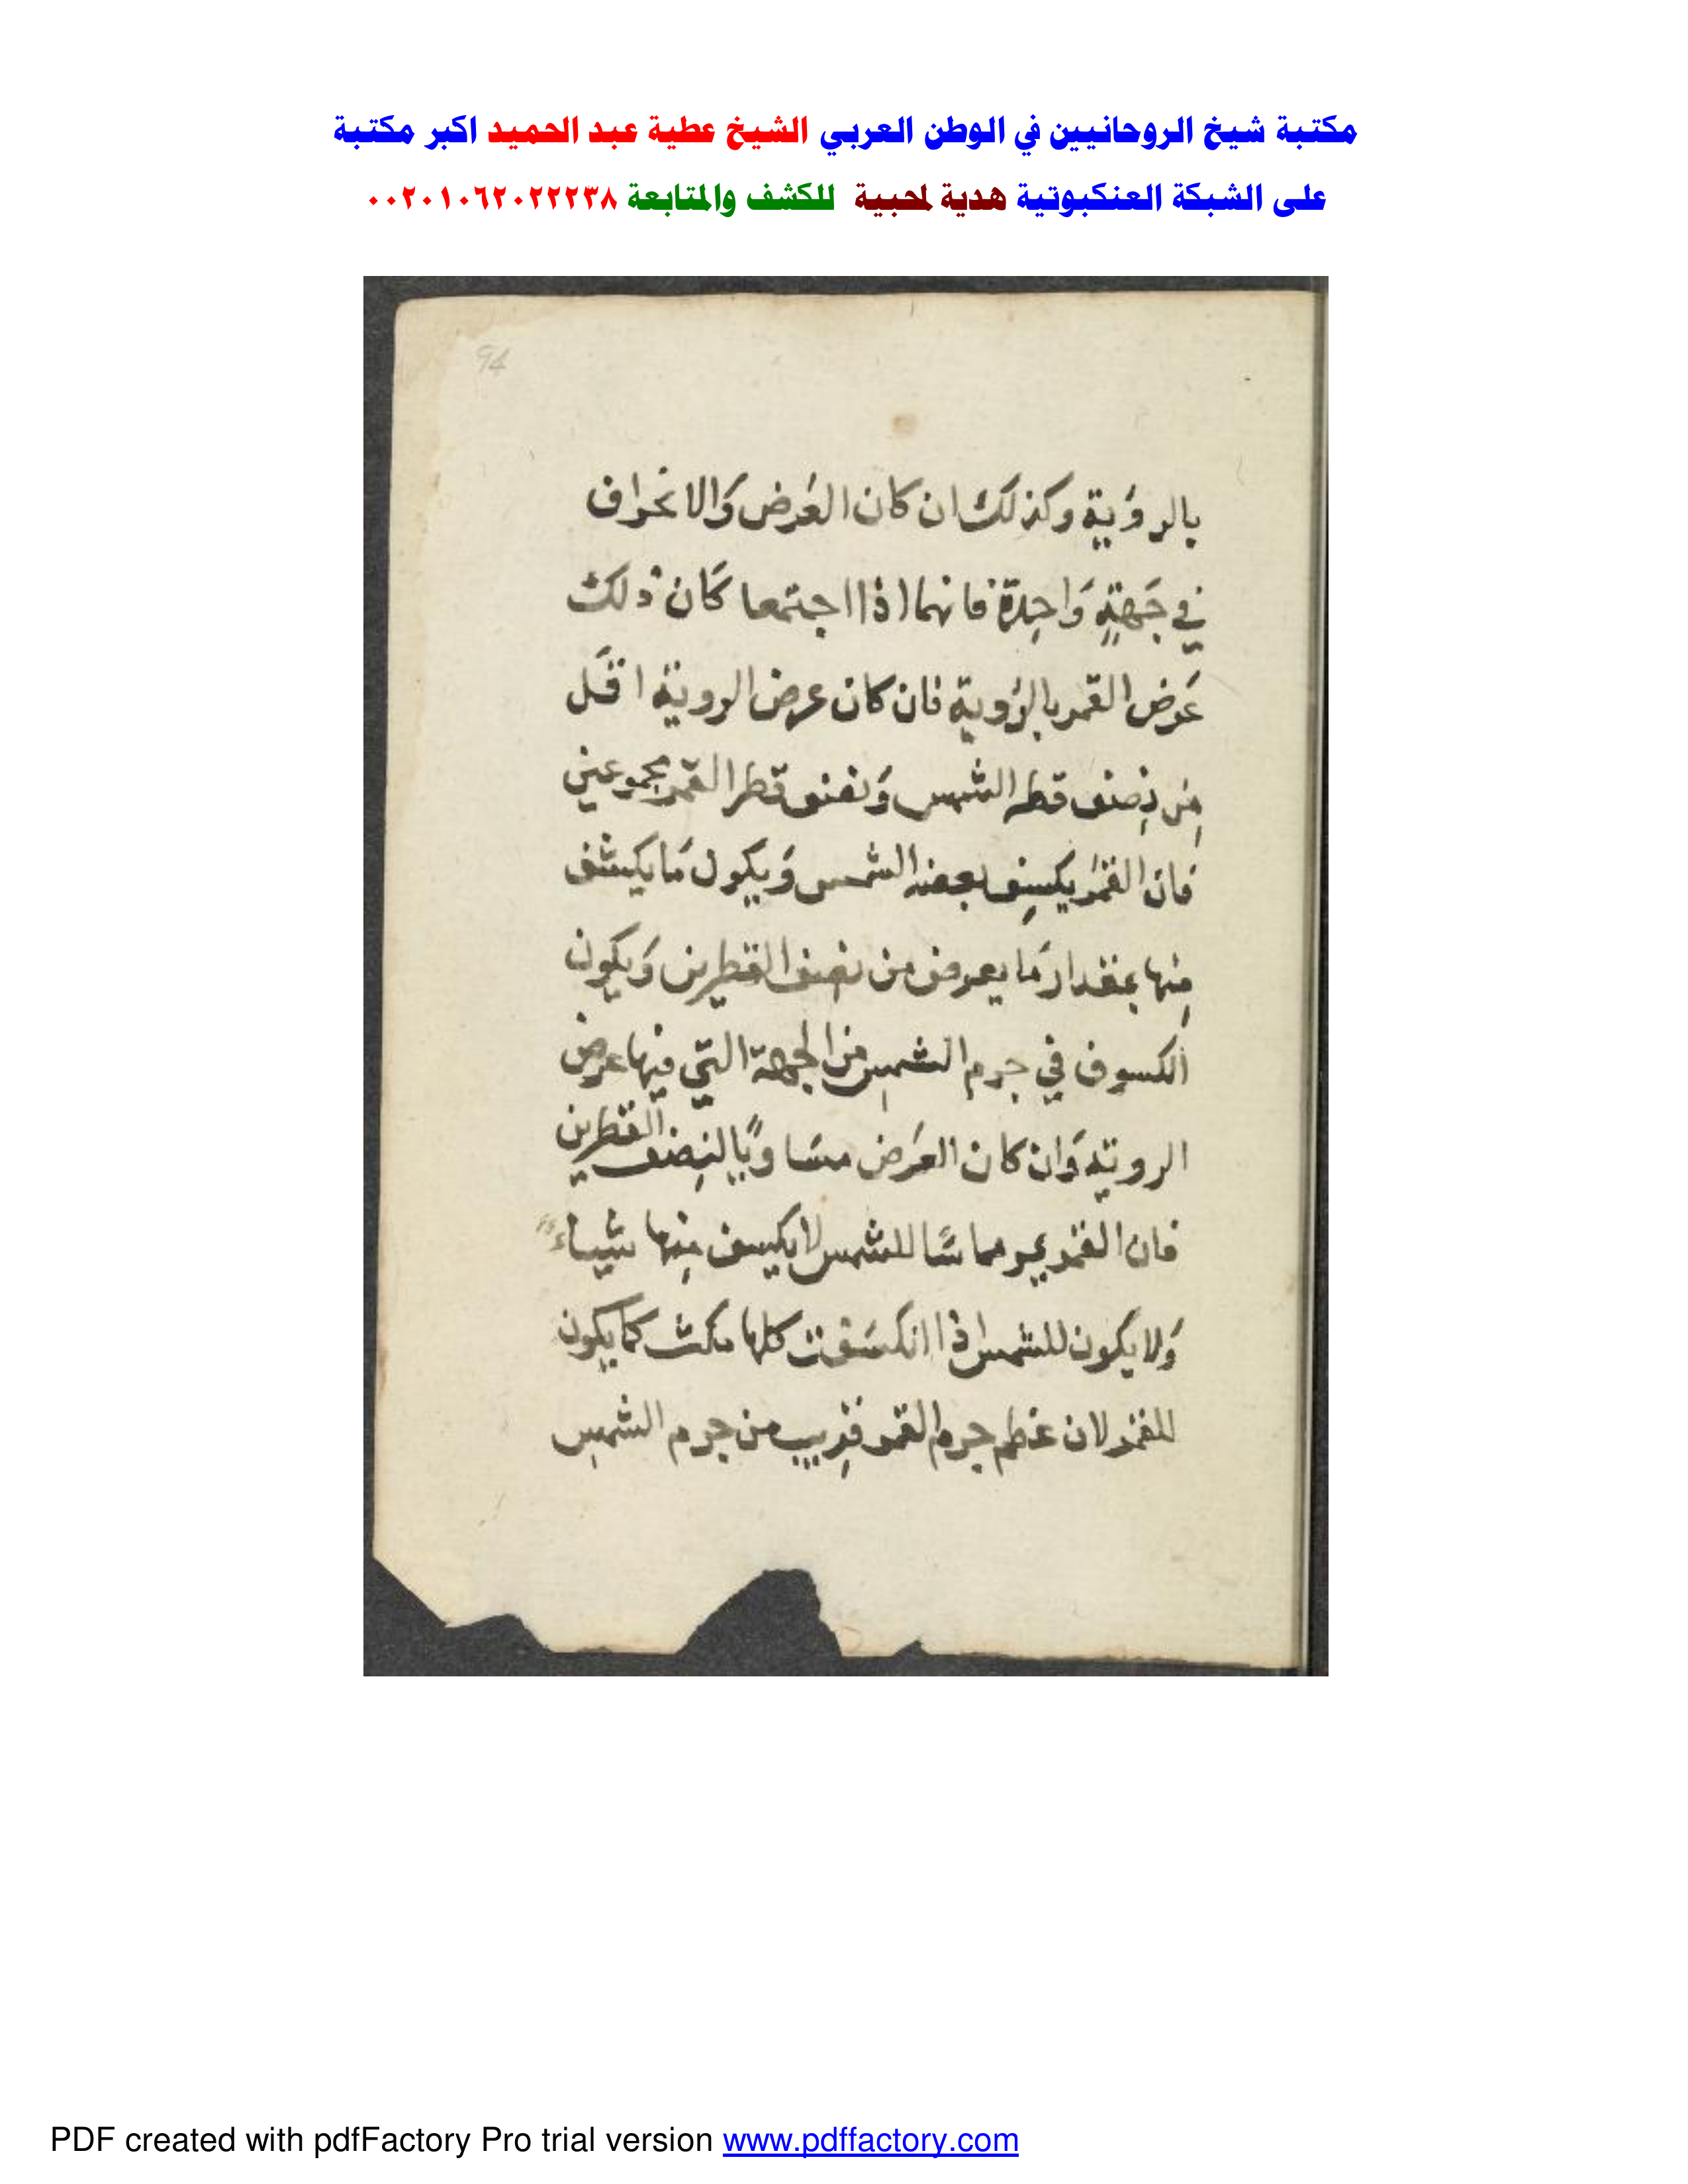 مكتبة شيخ الروحانيين في الوطن العربي الشيخ عطية عبد الحميد اكبر مكتبة
على الشبكة العنكبوتية هدية لمحبية للكشف والمتابعة ٠٠٢٠١٠٦٢٠٢٢٢٣٨
94
بالرؤَية وكذلك ان كان العَرض وَالانحراف
في جَهةٍ وَاحِدة فانهما اذا اجتمعا كَان ذلك
عَرض القمر بالرُوية فان كان عرض الروية اقَل
مِن نِصف قطر الشمس وَنصف قطر القمر مجموعين
فان القمَر يكسِف بعض الشمس وَيكون مَا يكشف
مِنها بمقدار مَا يعرض من نصف القطرين وَيكون
الكسوف في جرم الشمسِ من الجهة التي فيها عرض
الروية وَان كان العَرض مسَاويًا لنِصف القطرين
فان القمر يمر مماسًا للشمس لا يكسف مِنها شياء
وَلا يكون للشمس اذا انكسَفت كلها مكث كما يكون
للقمر لان عظم جرم القمر قرِيب من جرم الشمسِ
PDF created with pdfFactory Pro trial version www.pdffactory.com